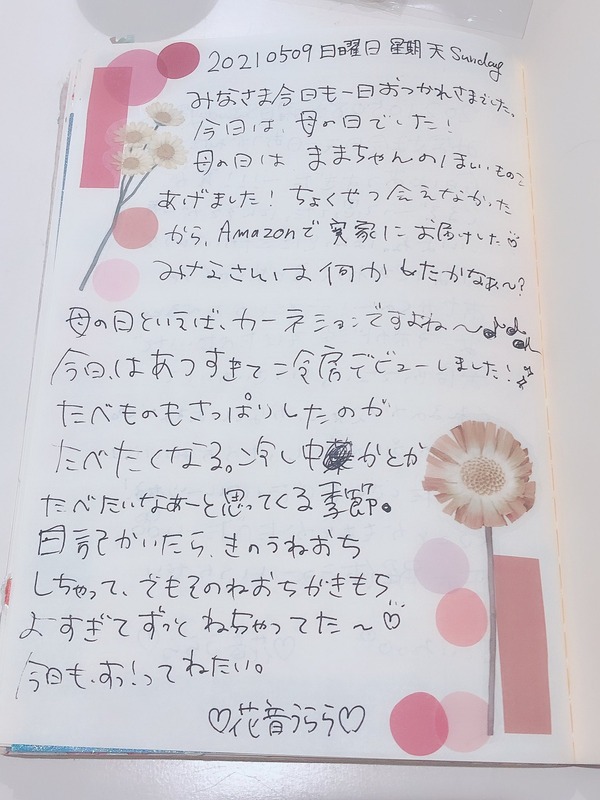 20210509 日曜日 星期天 Sunday
みなさま今日も一日おつかれさまでした。
今日は、母の日でした！
母の日は ままちゃんのほしいものを
あげました！ ちょくせつ会えなかった
から、Amazonで 実家に お届けした
みなさんは 何か したかなぁ〜？
母の日といえば、カーネションですよね〜
今日、はあつすぎて冷房デビューしました！
たべものもさっぱりしたのが
たべたくなる。冷し中かとか
たべたいなあーと思ってくる季節。
日記かいたら、きのうねおち
しちゃって、でもそのねおちがきもち
よすぎてずっと ねちゃってた〜
今日も、すっ！ってねたい。
♡花音うらら♡